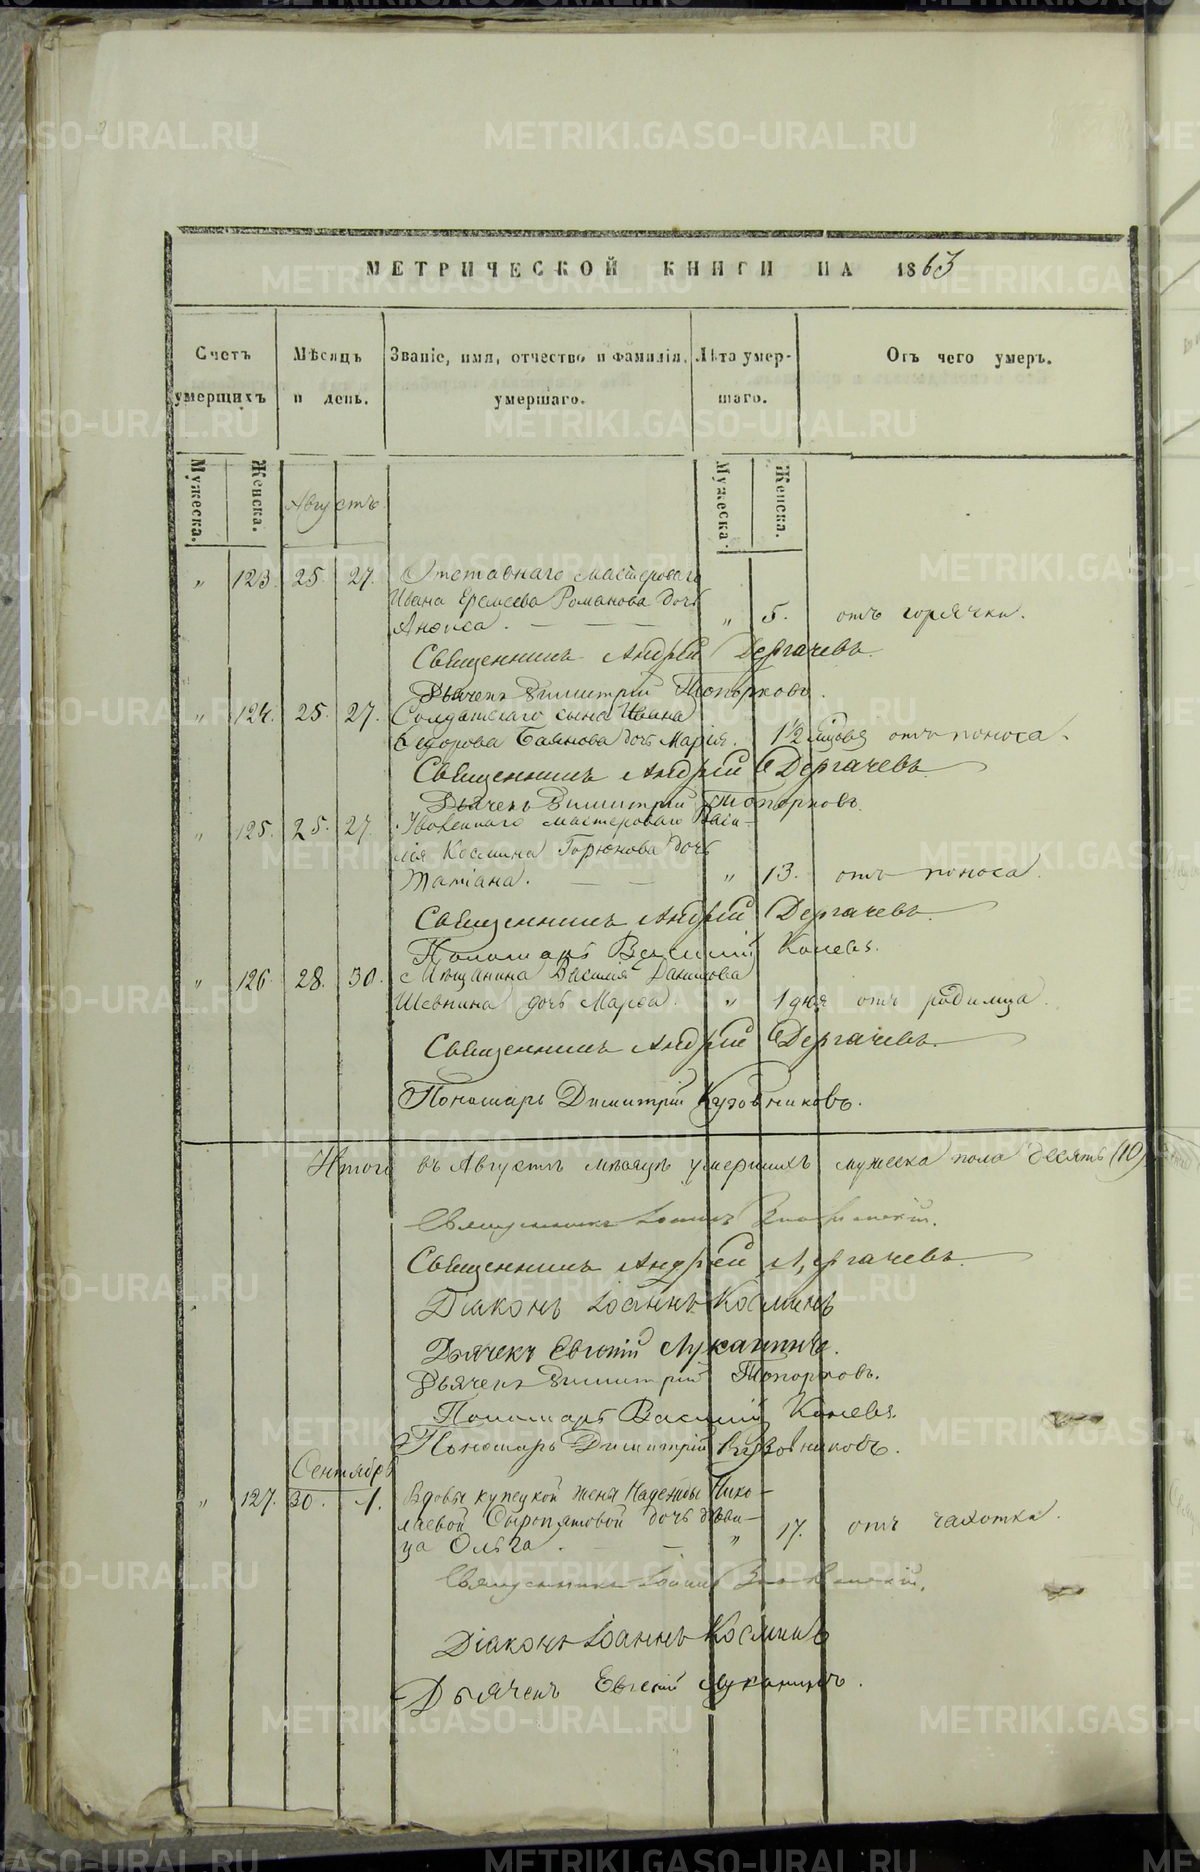 МЕТРИЧЕСКОЙ КНИГИ НА 1863
Счетъ умерщихъ
Мѣсяцъ и день.
Званіе, имя, отчество и фамилія умершаго.
Лѣта умершаго.
Отъ чего умеръ.
Мужеска. Женска.
Августъ
Мужеска. Женска.
„ 123. 25. 27. Отставнаго мастероваго
Ивана Еремеева Романова дочь
Анѳиса. — — — „ 5. отъ горячки.
Священникъ Андрей Дергачевъ.
Дьячекъ Димитрій Топорковъ.
„ 124. 25. 27. Солдатскаго сына Ивана
Ѳедорова Баянова дочь Марія. 1 1/2 отъ поноса.
Священникъ Андрей Дергачевъ
Дьячекъ Димитрій Топорковъ.
„ 125. 25. 27. Уволеннаго мастероваго Васи-
лія Космина Горюнова дочь
Татіана. — — „ 13. отъ поноса.
Священникъ Андрей Дергачевъ.
Пономарь Василій Коневъ.
„ 126. 28. 30. Мѣщанина Василія Данилова
дочь Марѳа. „ 1 дня отъ родимца.
Священникъ Андрей Дергачевъ.
Пономарь Димитрій Кузовниковъ.
Итого въ Августѣ мѣсяцѣ умершихъ мужеска пола десять (10)
Священникъ Іоаннъ
Священникъ Андрей Дергачевъ.
Діаконъ Іоаннъ Косминъ
Дьячекъ Евгеній Луканинъ.
Дьячекъ Димитрій Топорковъ.
Пономарь Василій Коневъ.
Пономарь Димитрій Кузовниковъ.
Сентябрь
„ 127. 30. 1. Вдовы купецкой жены Надежды Нико-
лаевой Сыропятовой дочь дѣви-
ца Ольга. — — „ 17. отъ чахотки.
Священникъ Іоаннъ
Діаконъ Іоаннъ Косминъ
Дьячекъ Евгеній Луканинъ.
METRIKI.GASO-URAL.RU